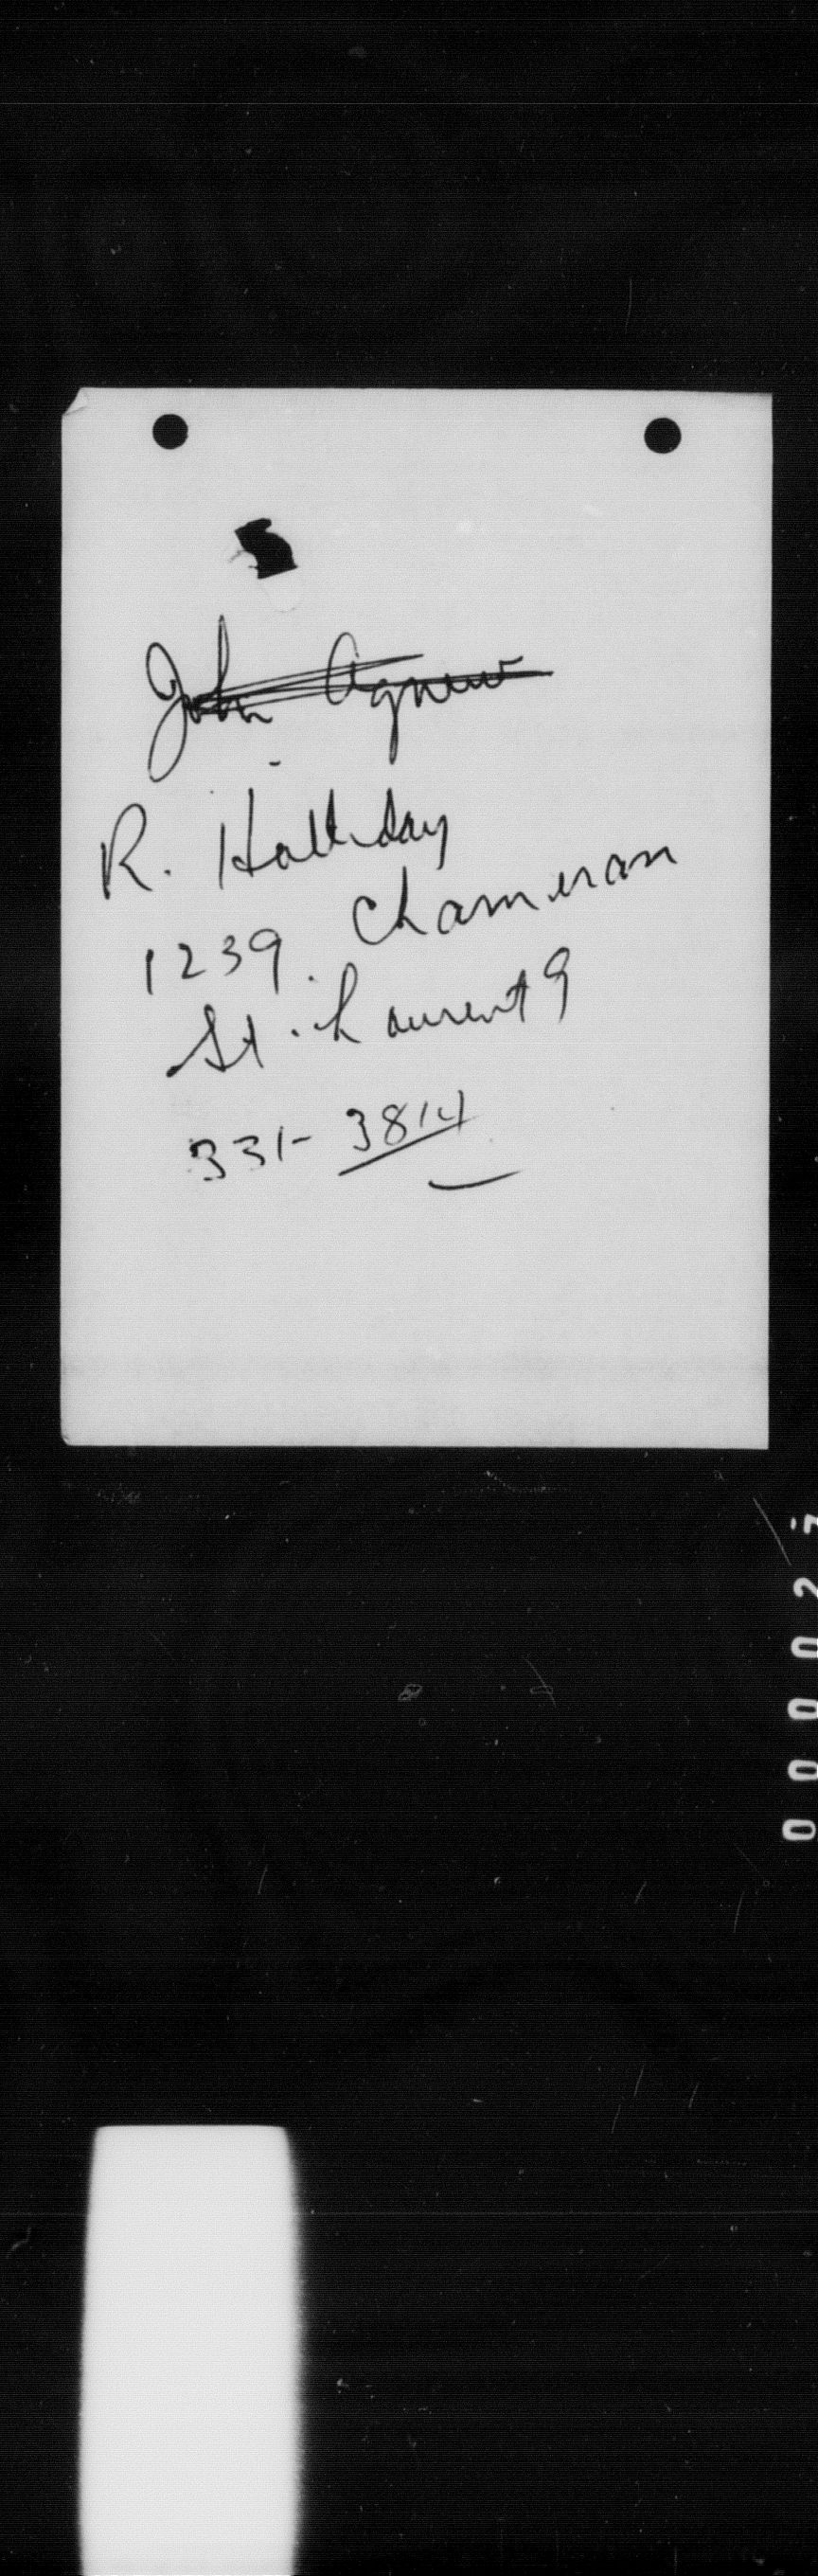 John Agnew
R. Halliday
1239. Chameran
St. Laurent 9
331-3814
000023